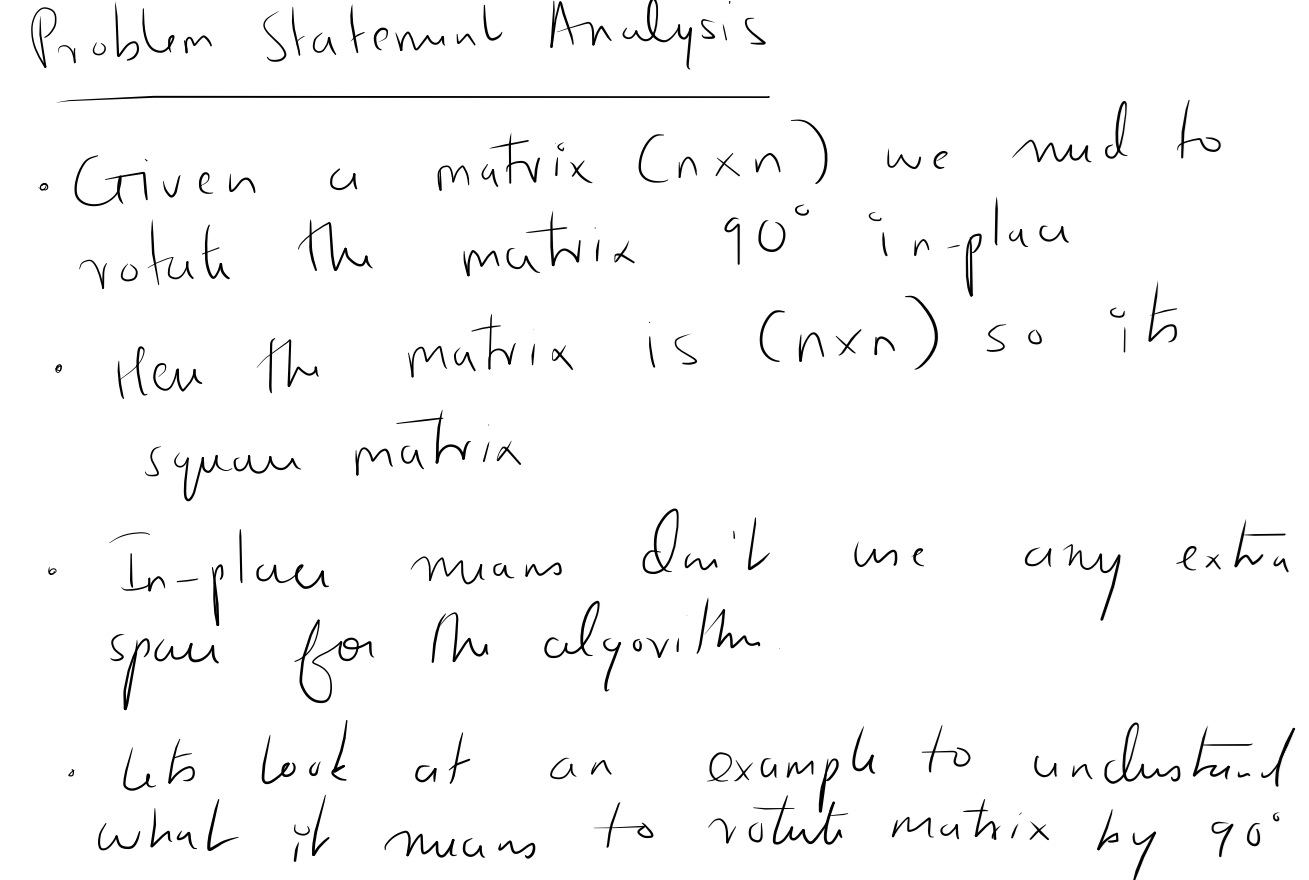 Problem Statement Analysis
• Given a matrix (n×n) we need to
rotate the matrix 90° in-place
• Here the matrix is (n×n) so its
square matrix
• In-place means don't use any extra
space for the algorithm
• Lets look at an example to understand
what it means to rotate matrix by 90°